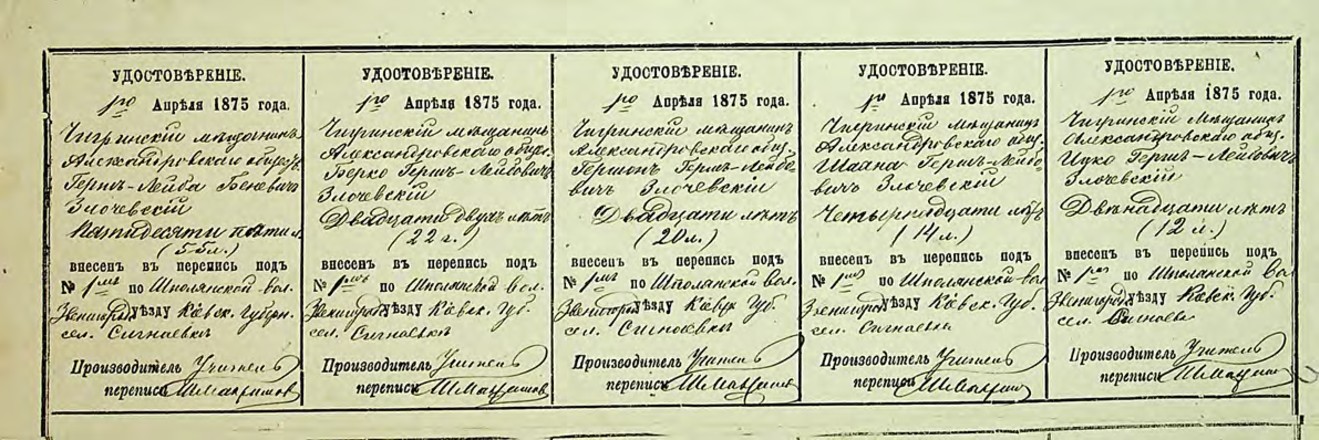 УДОСТОВѢРЕНІЕ.
1го Апрѣля 1875 года.
Чигринскій мѣщанинъ
Александровскаго общ.
Герш-Лейба Беневичъ
Злочевскій
Пятидесяти пяти л.
(55 л.)
внесенъ въ перепись подъ
№ 1мъ по Шполянской вол.
Звенигород. уѣзду Кіевск. Губерн.
сел. Сигнаевки
Производитель Учитель
переписи Ш. Макримов
УДОСТОВѢРЕНІЕ.
1го Апрѣля 1875 года.
Чигринскій мѣщанинъ
Александровскаго общ.
Берко Герш-Лейбовичъ
Злочевскій
Двадцати двухъ лѣтъ
(22 г.)
внесенъ въ перепись подъ
№ 1мъ по Шполянской вол.
Звенигород. уѣзду Кіевск. Губ.
сел. Сигнаевки
Производитель Учитель
переписи
УДОСТОВѢРЕНІЕ.
1го Апрѣля 1875 года.
Чигринскій мѣщанинъ
Александровскаго общ.
Гершон Герш-Лейбо-
вичъ Злочевскій
Двадцати лѣтъ
(20 л.)
внесенъ въ перепись подъ
№ 1мъ по Шполанской вол.
Звенигород. уѣзду Кіевск. Губ.
сел. Сигнаевки
Производитель Учитель
переписи
УДОСТОВѢРЕНІЕ.
1го Апрѣля 1875 года.
Чигринскій мѣщанинъ
Александровскаго общ.
Герш-Лейбо-
вичъ Злочевскій
Четырнадцати лѣтъ
(14 л.)
внесенъ въ перепись подъ
№ 1мъ по Шполянской вол.
Звенигород. уѣзду Кіевск. Губ.
сел. Сигнаевка
Производитель Учитель
переписи
УДОСТОВѢРЕНІЕ.
1го Апрѣля 1875 года.
Чигринскій мѣщанинъ
Александровскаго общ.
Ицко Герш-Лейбовичъ
Злочевскій
Двѣнадцати лѣтъ
(12 л.)
внесенъ въ перепись подъ
№ 1мъ по Шполанской вол.
Звенигород. уѣзду Кіевск. Губ.
сел. Сигнаевк
Производитель Учитель
переписи